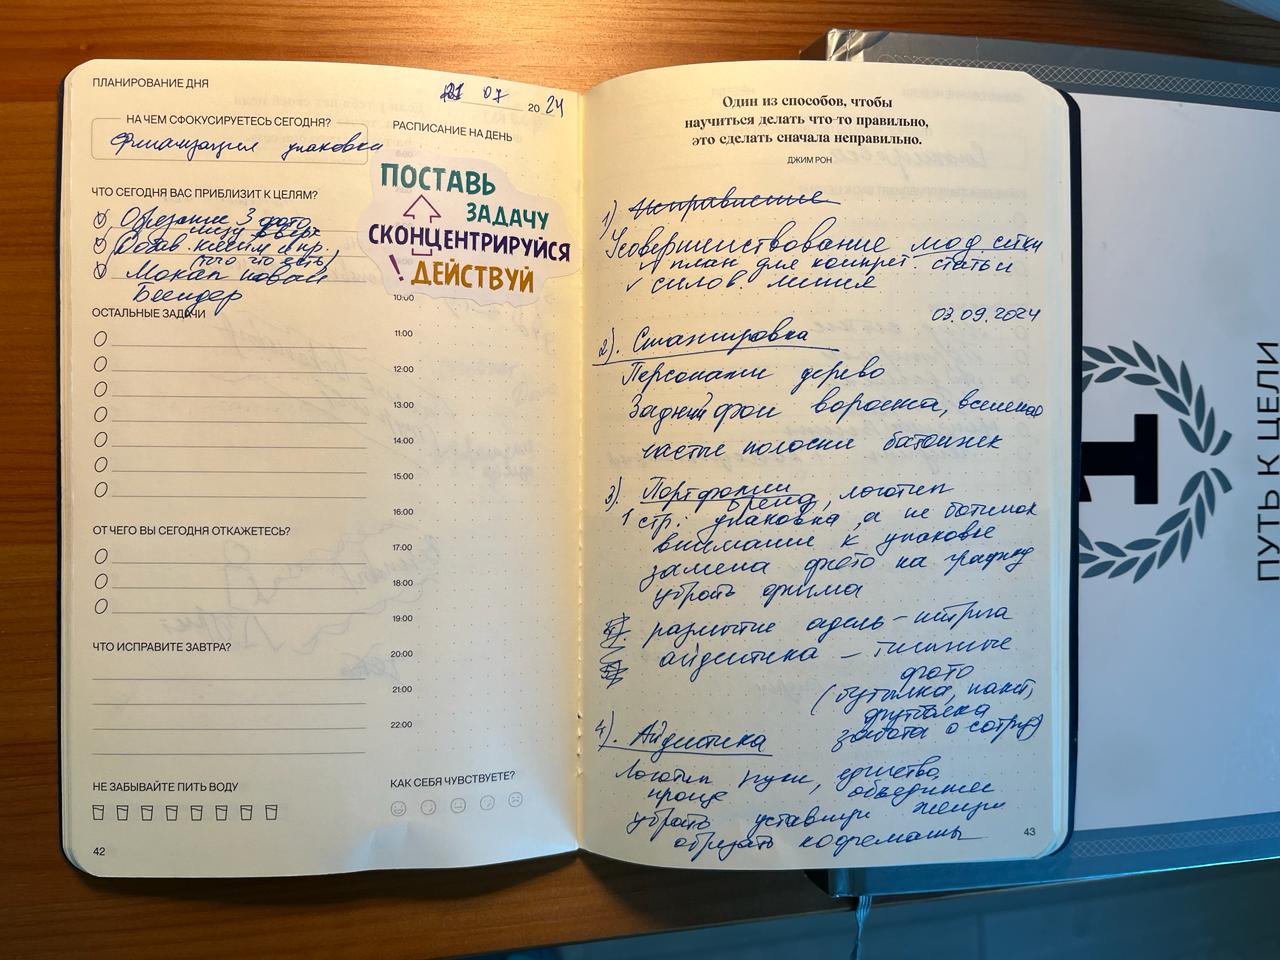 ПЛАНИРОВАНИЕ ДНЯ
07 2024
НА ЧЕМ СФОКУСИРУЕТЕСЬ СЕГОДНЯ?
Финализация упаковки
ЧТО СЕГОДНЯ ВАС ПРИБЛИЗИТ К ЦЕЛЯМ?
Обрезание 3 фото
Добав.
(того что есть)
Мокап новый
Блендер
ОСТАЛЬНЫЕ ЗАДАЧИ
ОТ ЧЕГО ВЫ СЕГОДНЯ ОТКАЖЕТЕСЬ?
ЧТО ИСПРАВИТЕ ЗАВТРА?
НЕ ЗАБЫВАЙТЕ ПИТЬ ВОДУ
42
РАСПИСАНИЕ НА ДЕНЬ
ПОСТАВЬ
ЗАДАЧУ
СКОНЦЕНТРИРУЙСЯ
! ДЕЙСТВУЙ
10:00
11:00
12:00
13:00
14:00
15:00
16:00
17:00
18:00
19:00
20:00
21:00
22:00
КАК СЕБЯ ЧУВСТВУЕТЕ?
Один из способов, чтобы
научиться делать что-то правильно,
это сделать сначала неправильно.
ДЖИМ РОН
1)
Усовершенствование мод. сетки
план для конкрет. статьи
силов. линия
03.09.2024
2). Стажировка
Персонажи дерево
Задний фон воронка, вселенная
частые полоски батончик
3). Портфолио
бренд, логотип
1 стр: упаковка, а не ботинок
внимание к упаковке
замена фото на графику
убрать
размытие
айдентика –
фото
(бутылка, пакет,
футболка
забота о сотруд)
4). Айдентика
Логотип единство,
проще объединение
убрать
обрезать
43
ПУТЬ К ЦЕЛИ